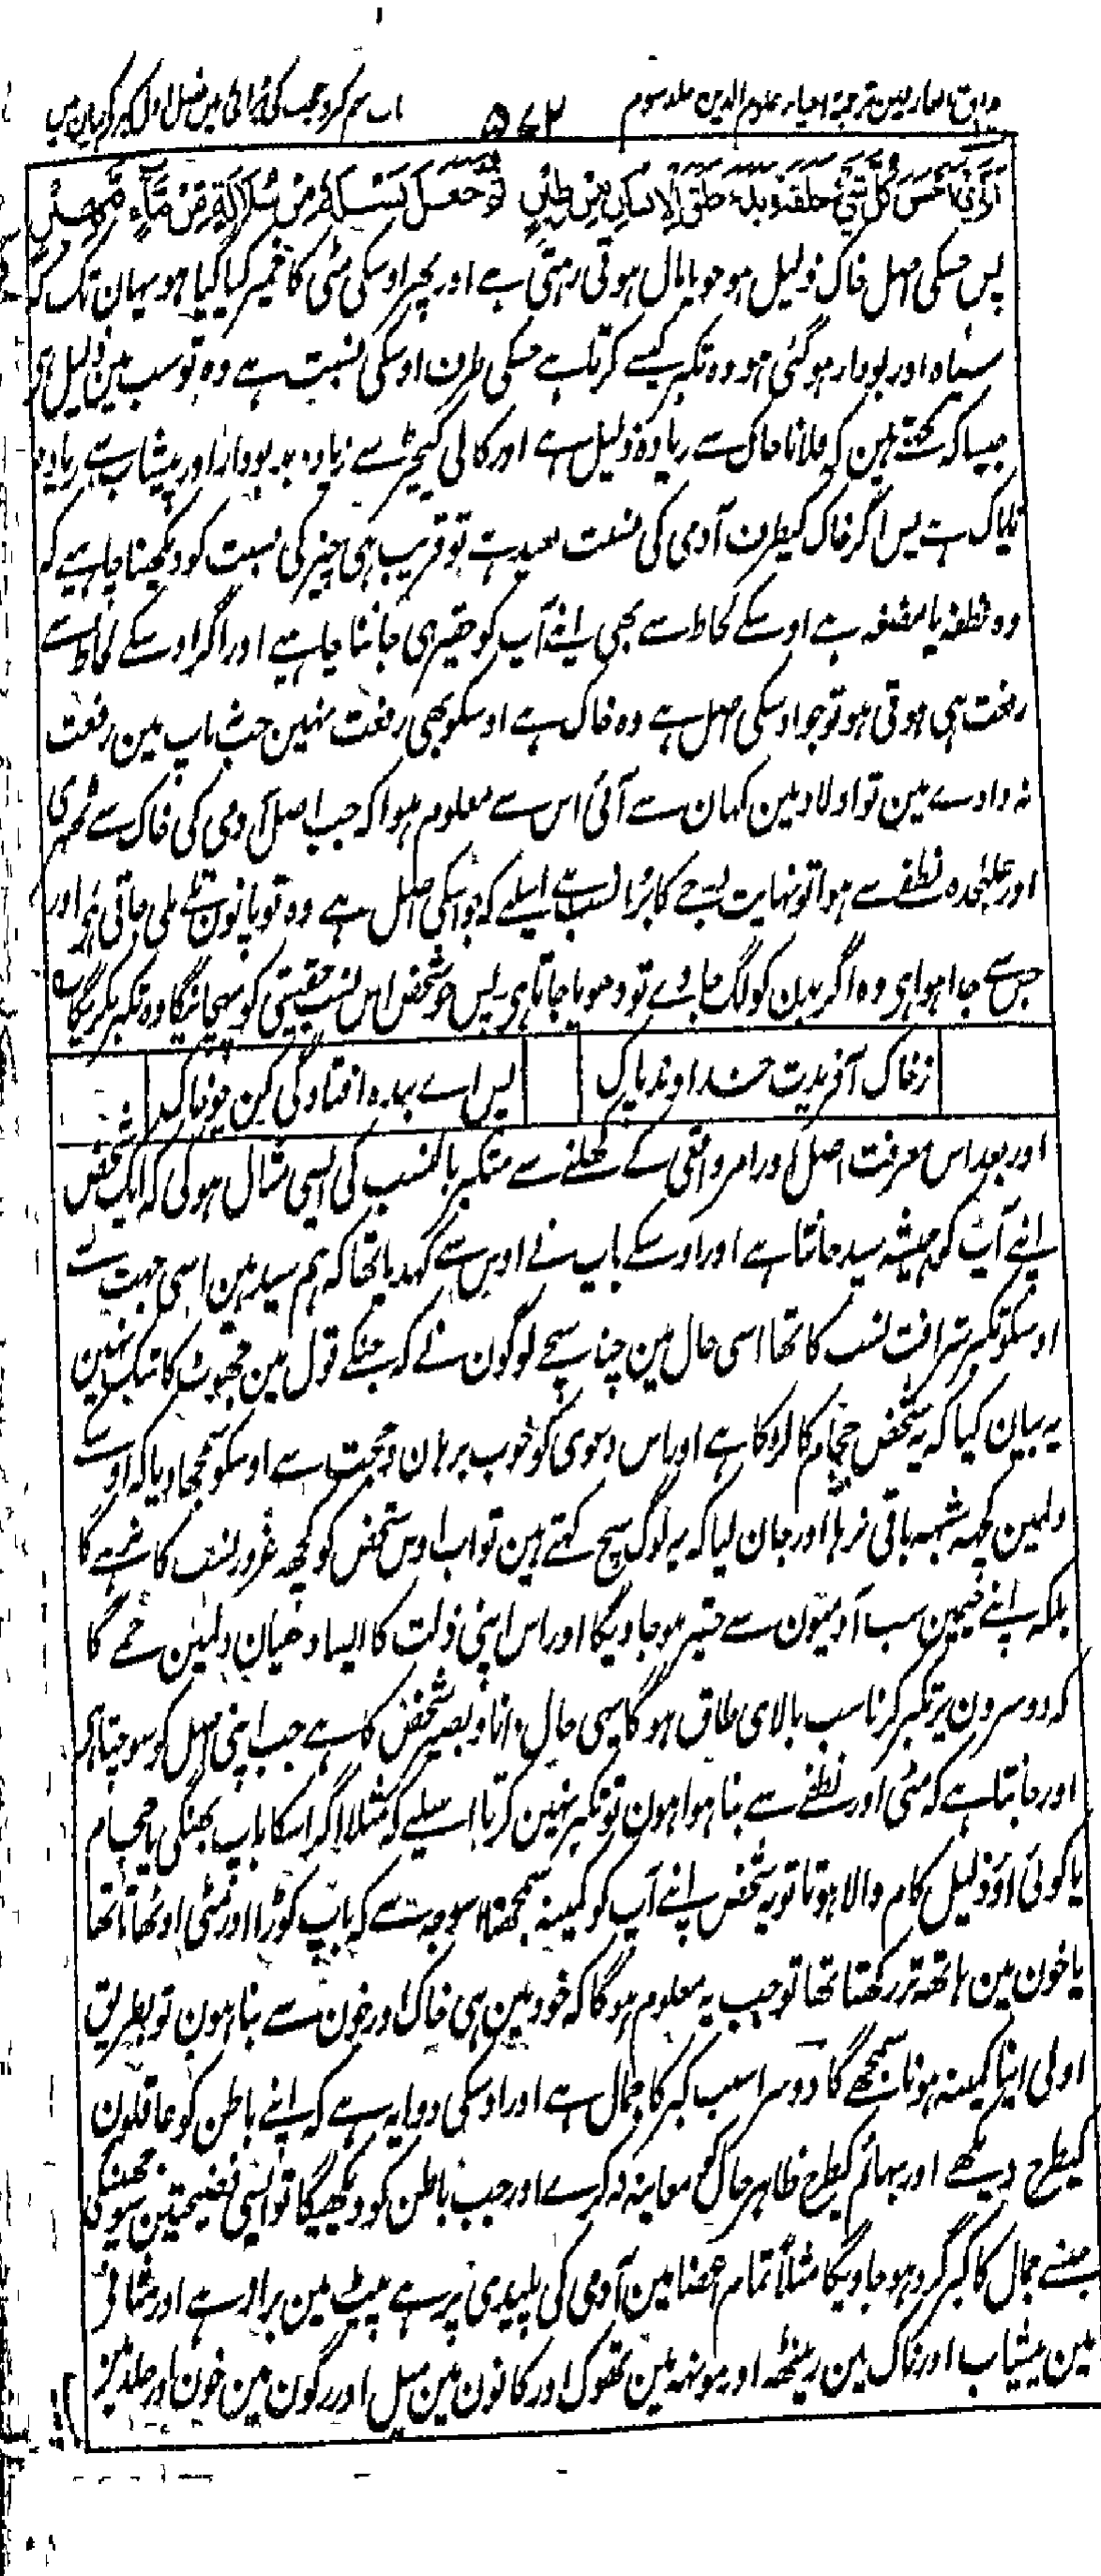 مذاق العارفین ترجمۂ احیاء علوم الدین جلد سوم ۵۷۲ باب نہم کبر و عجب کی برائی میں فصل اول کبر کے بیان میں
الَّذِیْ اَحْسَنَ كُلَّ شَیْءٍ خَلَقَهٗ وَبَدَاَ خَلْقَ الْاِنْسَانِ مِنْ طِیْنٍ ثُمَّ جَعَلَ نَسْلَهٗ مِنْ سُلٰلَةٍ مِّنْ مَّآءٍ مَّهِیْنٍ
پس جسکی اصل خاک ذلیل ہو جو پامال ہوتی رہتی ہے اور پھر اوسکی مٹی کا خمیر کیا گیا ہو یہان تک کہ
سیاہ اور بودار ہو گئی ہو وہ تکبر کیسے کرتا ہے جسکی طرف اوسکی نسبت ہے وہ تو سب مین ذلیل ہے
جیسا کہ کہتے ہین کہ فلانا خاک سے زیادہ ذلیل ہے اور کالی کیچڑ سے زیادہ بدبودار اور پیشاب سے زیادہ
ناپاک ہے پس اگر خاک کیطرف آدمی کی نسبت بعید ہے تو قریب ہی چیز کی نسبت کو دیکھنا چاہیے کہ
وہ نطفہ یا مضغہ ہے اوسکے لحاظ سے بھی اپنے آپ کو حقیر ہی جاننا چاہیے اور اگر اوسکے لحاظ سے
رفعت ہی ہوتی ہو تو جو اوسکی اصل ہے وہ خاک ہے اوسکو بھی رفعت نہین جب باپ مین رفعت
نہ دادے مین تو اولاد مین کہان سے آئی اس سے معلوم ہوا کہ جب اصل آدمی کی خاک سے ٹھہری
اور علیٰحدہ نطفے سے ہوا تو نہایت بُرے کا بُرا نسب ہے اسلیے کہ جو اسکی اصل ہے وہ تو پانون تلے ملی جاتی ہے اور
جس سے جدا ہوا ہی وہ اگر بدن کو لگ جاوے تو دھویا جاتا ہی پس جو شخص اس نسب حقیقی کو پہچانیگا وہ تکبر نکریگا ؎
ز خاک آفریدت خداوند پاک پس اے بندہ افتادگی کن چو خاک
اور بعد اس معرفت اصل اور امر واقعی کے کھلنے سے متکبر بالنسب کی ایسی مثال ہوگی کہ ایک شخص
اپنے آپ کو ہمیشہ سید جانتا ہے اور اوسکے باپ نے اوس سے کہدیا تھا کہ ہم سید ہین اسی جہت سے
اوسکو تکبر شرافت نسب کا تھا اسی حال مین چند سچے لوگون نے کہ جنکے قول مین جھوٹ کا شک نہین
یہ بیان کیا کہ یہ شخص حجام کا لڑکا ہے اور اس دعوی کو خوب برہان و حجت سے اوسکو سمجھا دیا کہ اوسکے
دلمین کچھ شبہہ باقی نرہا اور جان لیا کہ یہ لوگ سچ کہتے ہین تو اب اوس شخص کو کچھ غرور نسب کا نرہے گا
بلکہ اپنے جیمین سب آدمیون سے حقیر ہو جاویگا اور اس اپنی ذلت کا ایسا دھیان دلمین جمے گا
کہ دوسرون پر تکبر کرنا سب بالای طاق ہو گا یہی حال دانا و بصیر شخص کا ہے جب اپنی اصل کو سوچتا ہے
اور جانتا ہے کہ مٹی اور نطفے سے بنا ہوا ہون تو تکبر نہین کرتا اسلیے کہ مثلا اگر اسکا باپ بھنگی یا حجام
یا کوئی اور ذلیل کام والا ہوتا تو یہ شخص اپنے آپ کو کمینہ سمجھتا اسوجہ سے کہ باپ کوڑا اور مٹی اوٹھاتا تھا
یا خون مین ہاتھ تر رکھتا تھا تو جب یہ معلوم ہوگا کہ خود مین ہی خاک اور خون سے بنا ہون تو بطریق
اولی اپنا کمینہ ہونا سمجھے گا دوسرا سبب کبر کا جمال ہے اور اوسکی دوا یہ ہے کہ اپنے باطن کو عاقلون
کیطرح دیکھے اور بہائم کیطرح ظاہر حال کو معاینہ نہ کرے اور جب باطن کو دیکھیگا تو ایسی فضیحتین سوجھینگی
جنسے جمال کا کبر گرد ہو جاویگا مثلاً تمام اعضا مین آدمی کی پلیدی پر ہے پیٹ مین براز ہے اور مثانے
مین پیشاب اور ناک مین رینٹھ اور مونہہ مین تھوک اور کانون مین میل اور رگون مین خون اور جلد مین